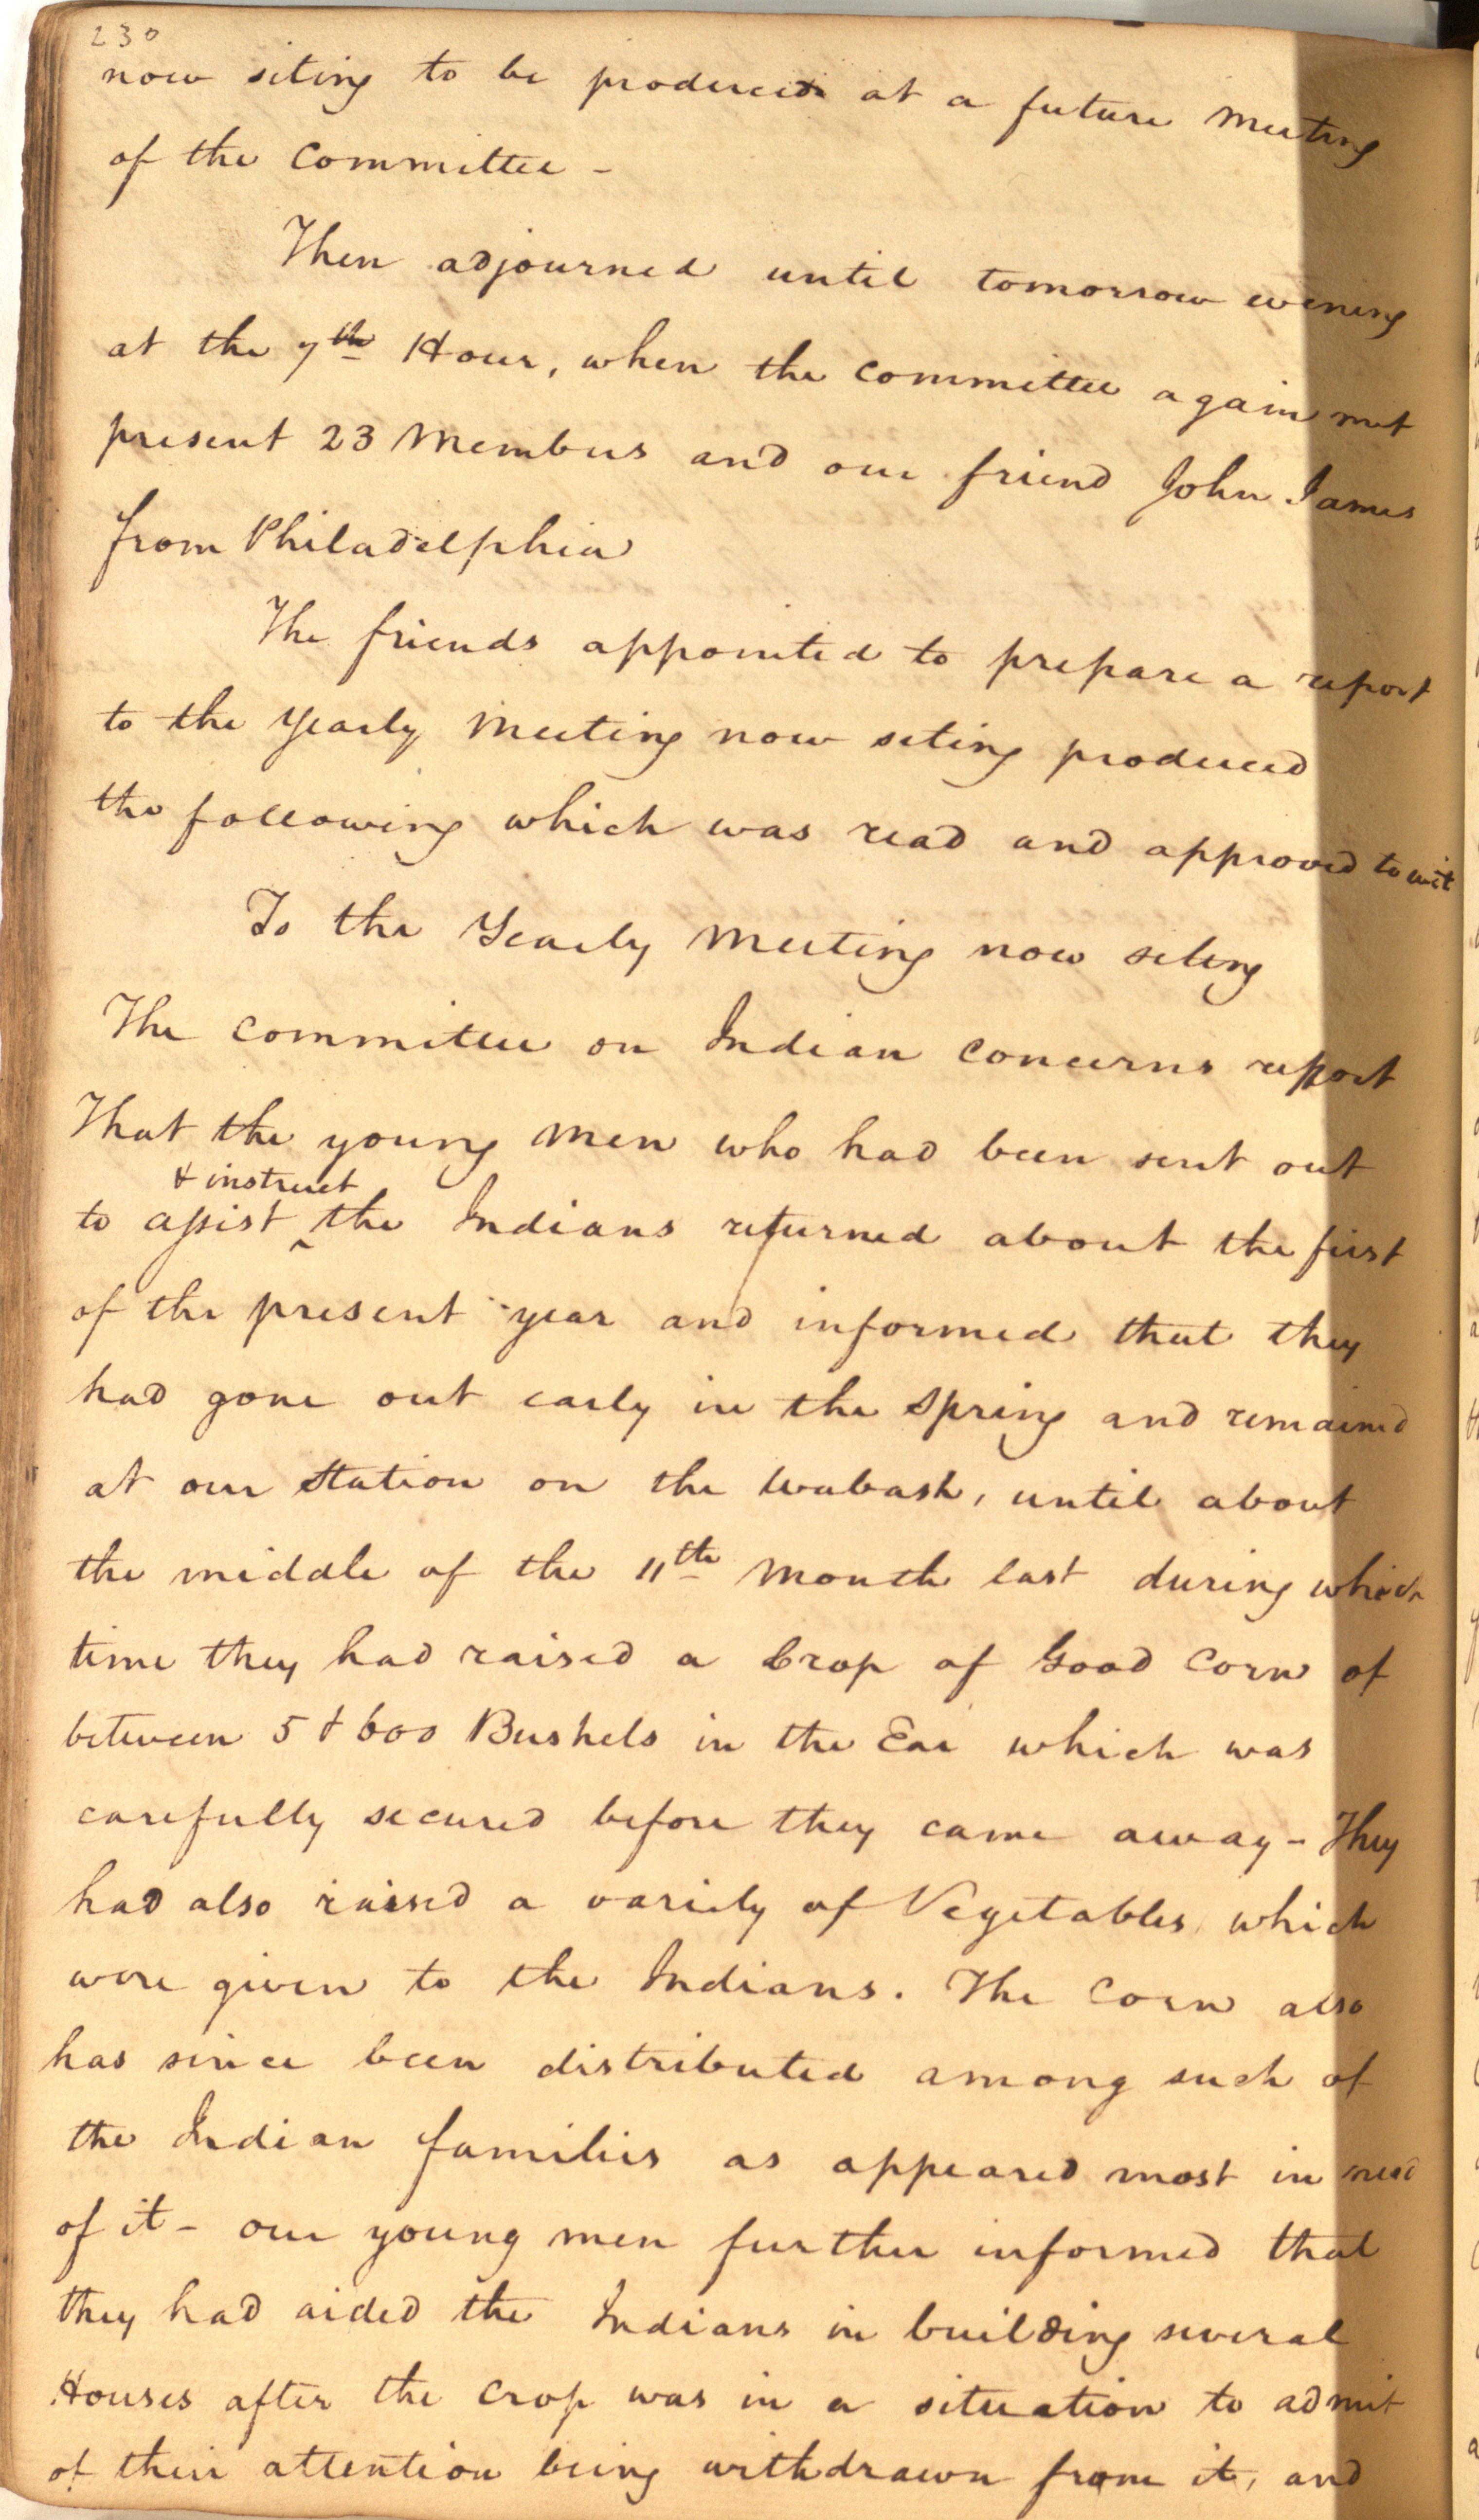 230
now siting to be produced at a future Meeting
of the Committee -
Then adjourned until tomorrow evening
at the 7th Hour, when the Committee again met
present 23 Members and our friend John James
from Philadelphia
The friends appointed to prepare a report
to the Yearly Meeting now seting produced
the following which was read and approved to wit
To the Yearly Meeting now seting
The Committee on Indian Concerns report
That the young Men who had been sent out
& instruct
to assist ^ the Indians returned about the first
of the present year and informed that they
had gone out early in the Spring and remained
at our Station on the Wabash, until about
the middle of the 11th Month last during which
time they had raised a Crop of Good Corn of
between 5 & 600 Bushels in the Ear which was
carefully secured before they came away - They
had also raised a variety of Vegetables which
were given to the Indians. The Corn also
has since been distributed among such of
the Indian families as appeared most in need
of it - our young men further informed that
they had aided the Indians in building several
Houses after the Crop was in a situation to admit
of their attention being withdrawn from it, and